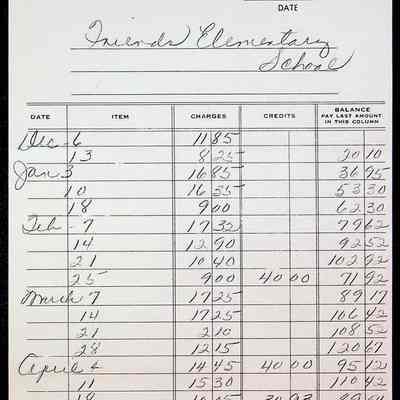 DATE
Friends Elementary
School
DATE ITEM CHARGES CREDITS BALANCE
PAY LAST AMOUNT
IN THIS COLUMN
Dec 6 11 85
13 8 25 20 10
Jan 3 16 85 36 95
10 16 35 53 30
18 9 00 62 30
Feb - 7 17 32 79 62
14 12 90 92 52
21 10 40 102 92
25 9 00 40 00 71 92
March 7 17 25 89 17
14 17 25 106 42
21 2 10 108 52
28 12 15 120 67
April 4 14 45 40 00 95 12
11 15 30 110 42
18